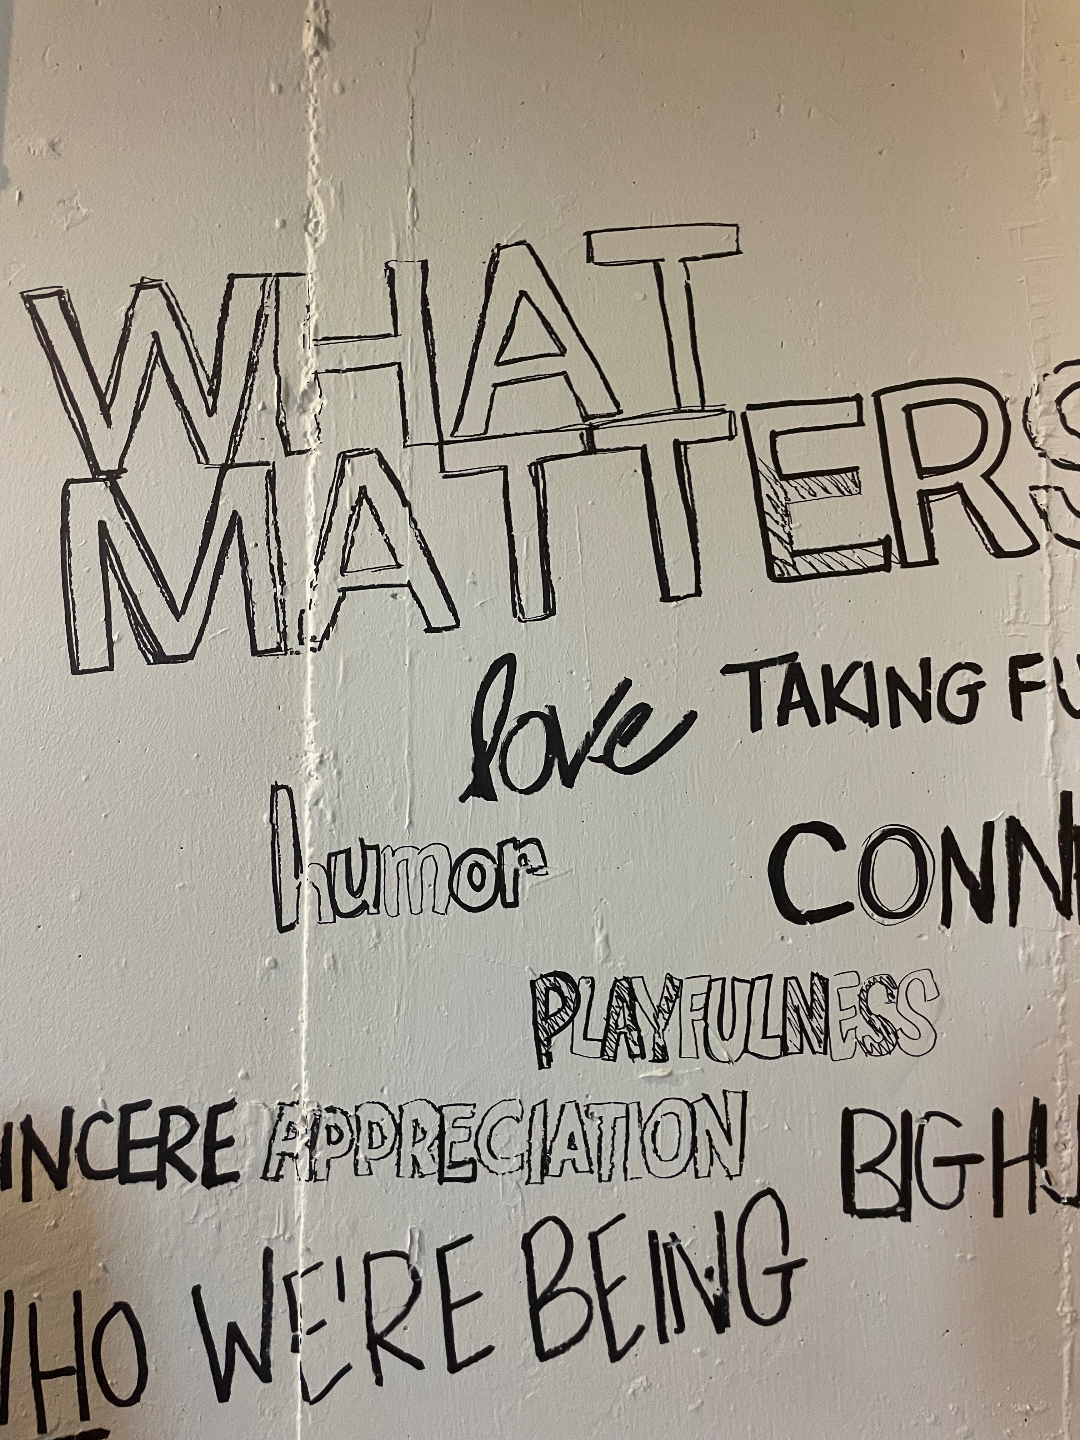 WHAT
MATTERS
love
TAKING FU
humor
CONN
PLAYFULNESS
INCERE APPRECIATION
BIG HU
WHO WE'RE BEING